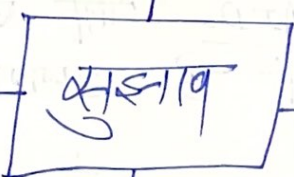 सुझाव